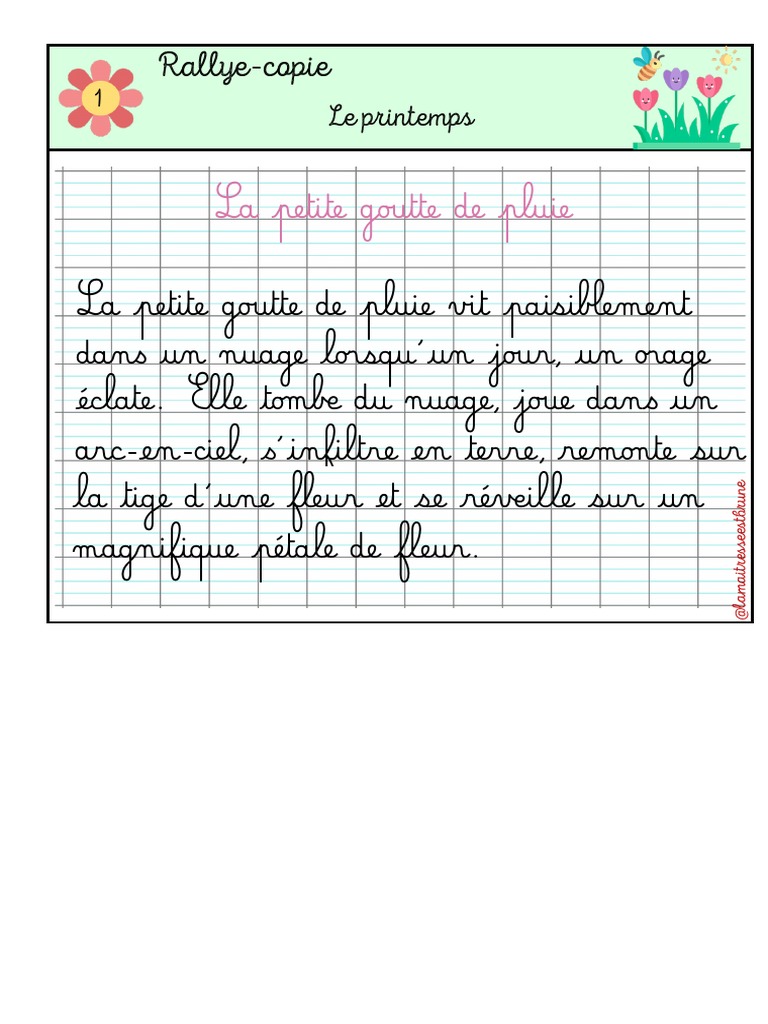 Rallye-copie
1
Le printemps
La petite goutte de pluie
La petite goutte de pluie vit paisiblement
dans un nuage lorsqu'un jour, un orage
éclate. Elle tombe du nuage, joue dans un
arc-en-ciel, s'infiltre en terre, remonte sur
la tige d'une fleur et se réveille sur un
magnifique pétale de fleur.
@lamaitresseestbrune